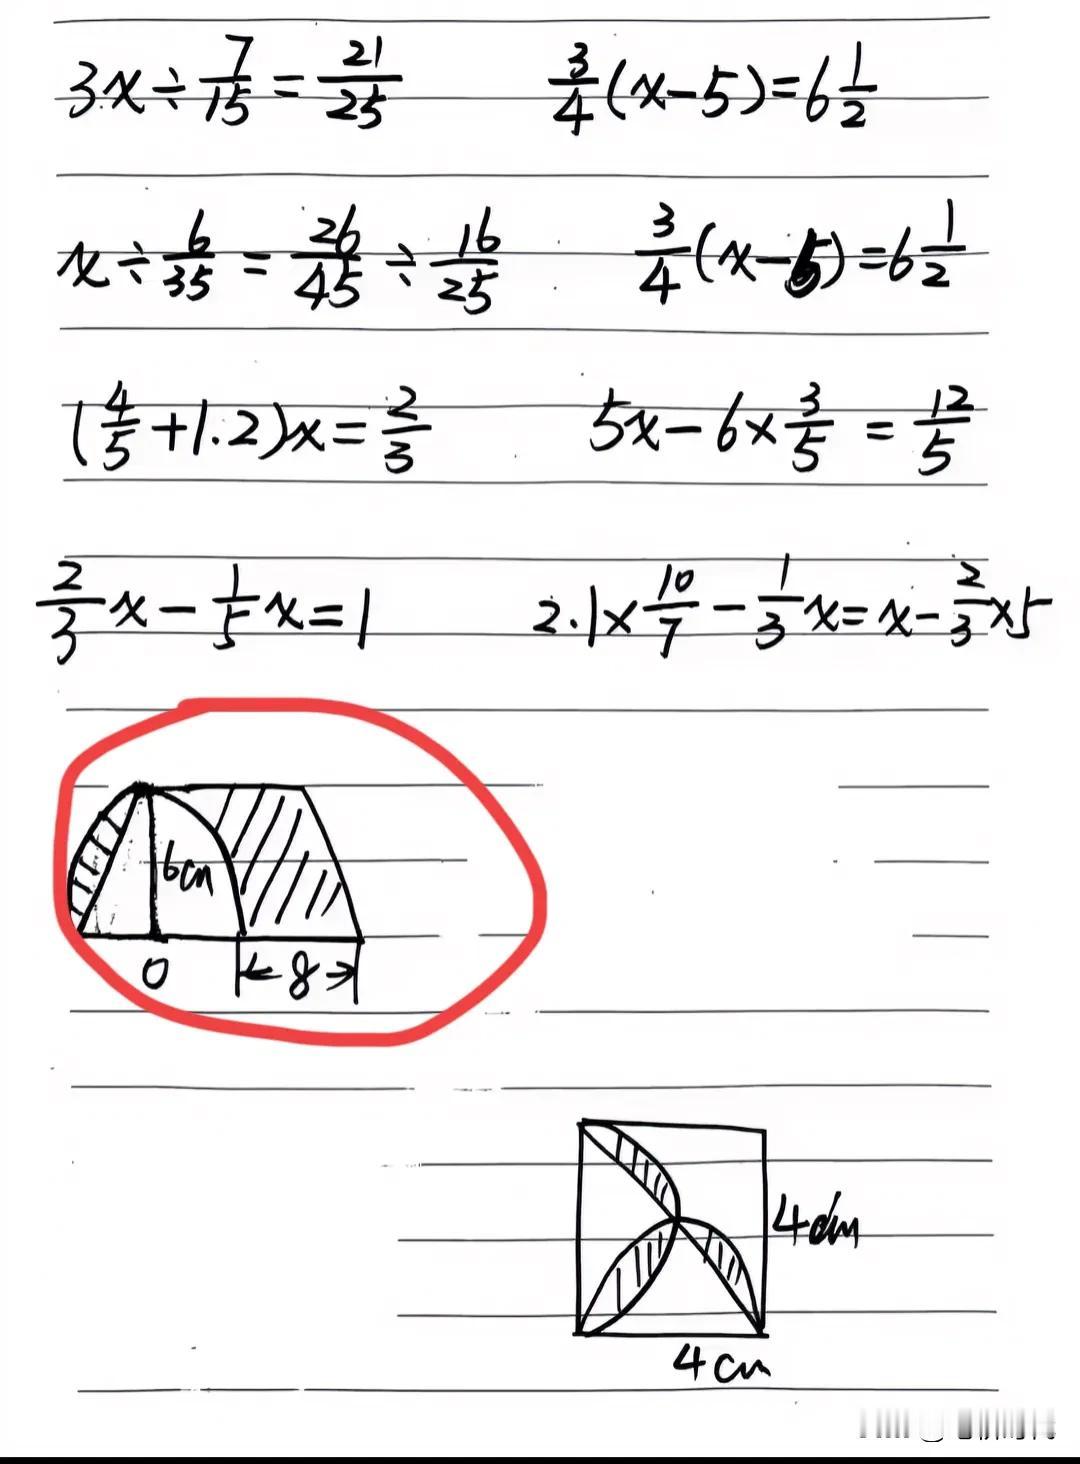 3x÷7/15=21/25 3/4(x-5)=6 1/2
x÷6/35=26/45÷16/25 3/4(x-5)=6 1/2
(4/5+1.2)x=2/3 5x-6×3/5=12/5
2/3x-1/5x=1 2.1×10/7-1/3x=x-2/3×5
6cm
O 8
4dm
4cm